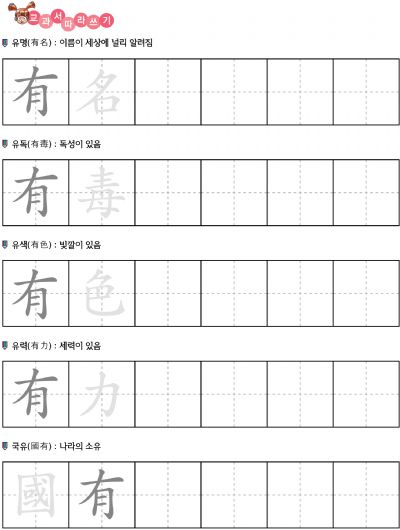 교과서따라쓰기
유명(有名) : 이름이 세상에 널리 알려짐
有名
유독(有毒) : 독성이 있음
有毒
유색(有色) : 빛깔이 있음
有色
유력(有力) : 세력이 있음
有力
국유(國有) : 나라의 소유
國有